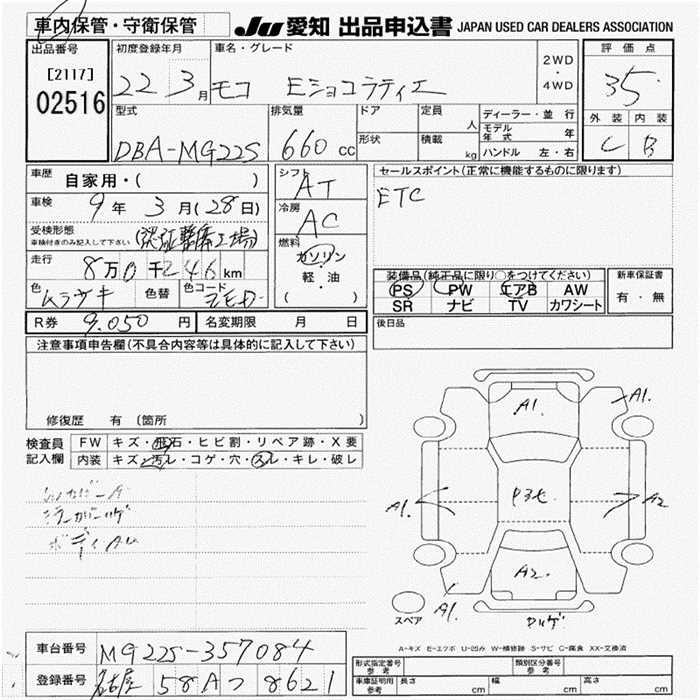 車内保管・守衛保管
JU 愛知 出品申込書 JAPAN USED CAR DEALERS ASSOCIATION
出品番号 初度登録年月 車名・グレード 2WD・4WD 評価点
[2117]
02516 22 3月 モコ Eショコラティエ 3.5
型式 排気量 ドア 定員 人 ディーラー・並行 外装 内装
DBA-MG22S 660 cc 形状 積載 kg モデル年式 年 C B
ハンドル 左・右
車歴 自家用・( ) シフト AT セールスポイント(正常に機能するものに限ります)
車検 9年 3月(28日) 冷房 AC ETC
受検形態 車検付きのみ記入して下さい (認証整備工場) 燃料 ガソリン
走行 8万0千246km 軽・油
色 ムラサキ 色替 色コード ( )
装備品(純正品に限り○をつけてください) 新車保証書
PS PW エアB AW 有・無
SR ナビ TV カワシート
R券 9,050円 名変期限 月 日 後日品
注意事項申告欄(不具合内容等は具体的に記入して下さい)
修復歴 有 (箇所 )
検査員記入欄 FW キズ・飛石・ヒビ割・リペア跡・X要
内装 キズ・汚レ・コゲ・穴・スレ・キレ・破レ
ボディA
A1. A1.
A1. A2
A2.
A1.
スペア ヤハゲ
A-キズ E-エクボ U-凹み W-補修跡 S-サビ C-腐食 XX-交換済
車台番号 MG22S-357084
登録番号 名古屋 58A つ 8621
形式指定番号 参考 類別区分番号 参考
車庫証明用 参考 長さ cm 幅 cm 高さ cm